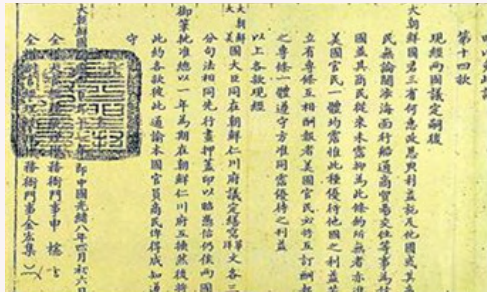 第十四款
現經兩國議定嗣後
大朝鮮國君主有何惠政恩典利益施及他國或其商
民無論關涉海面行船通商貿易交往等事為該
國並其商民從來未霑抑為此條約所無者亦准
美國官民一體均霑惟此種優待他國之利益若
立有專條互相酬報者美國官民必將互訂酬報
之專條一體遵守方准同霑優待之利益
以上各款現經
大朝鮮
大美國大臣同在朝鮮仁川府議定繕寫華洋文各三
分句法相同先行畫押蓋印以昭憑信仍俟兩國
御筆批准總以一年為期在朝鮮仁川府互換然後將
此約各款彼此通諭本國官員商民俾得咸知遵
守
大朝鮮國 年即中國光緒八年四月初六日
全權 務衙門事申櫶
全權 務衙門事金宏集